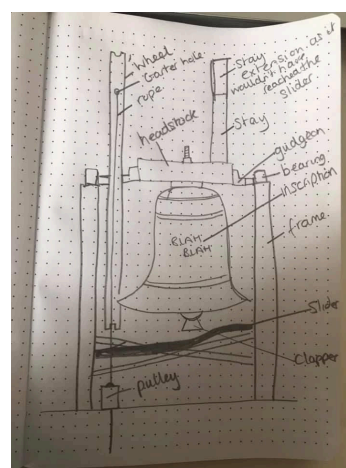 wheel
Garter hole
rope
stay
extension as it
wouldn't have
reached the
slider
stay
headstock
gudgeon
bearing
inscription
BLAH
BLAH
frame
Slider
clapper
pulley